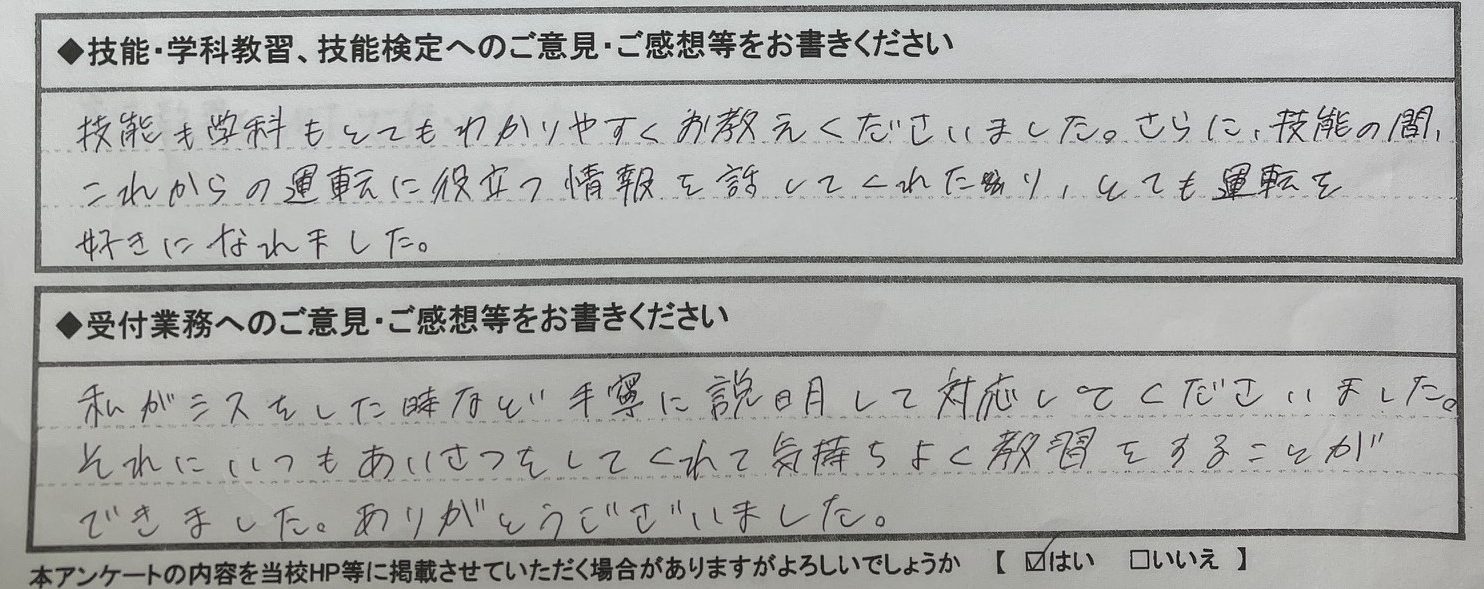 ◆技能・学科教習、技能検定へのご意見・ご感想等をお書きください
技能も学科もとてもわかりやすくお教えくださいました。さらに、技能の間、
これからの運転に役立つ情報を話してくれたり、とても運転を
好きになれました。
◆受付業務へのご意見・ご感想等をお書きください
私がミスをした時など丁寧に説明して対応してくださいました。
それにいつもあいさつをしてくれて気持ちよく教習をすることが
できました。ありがとうございました。
本アンケートの内容を当校HP等に掲載させていただく場合がありますがよろしいでしょうか 【 ☑はい □いいえ 】